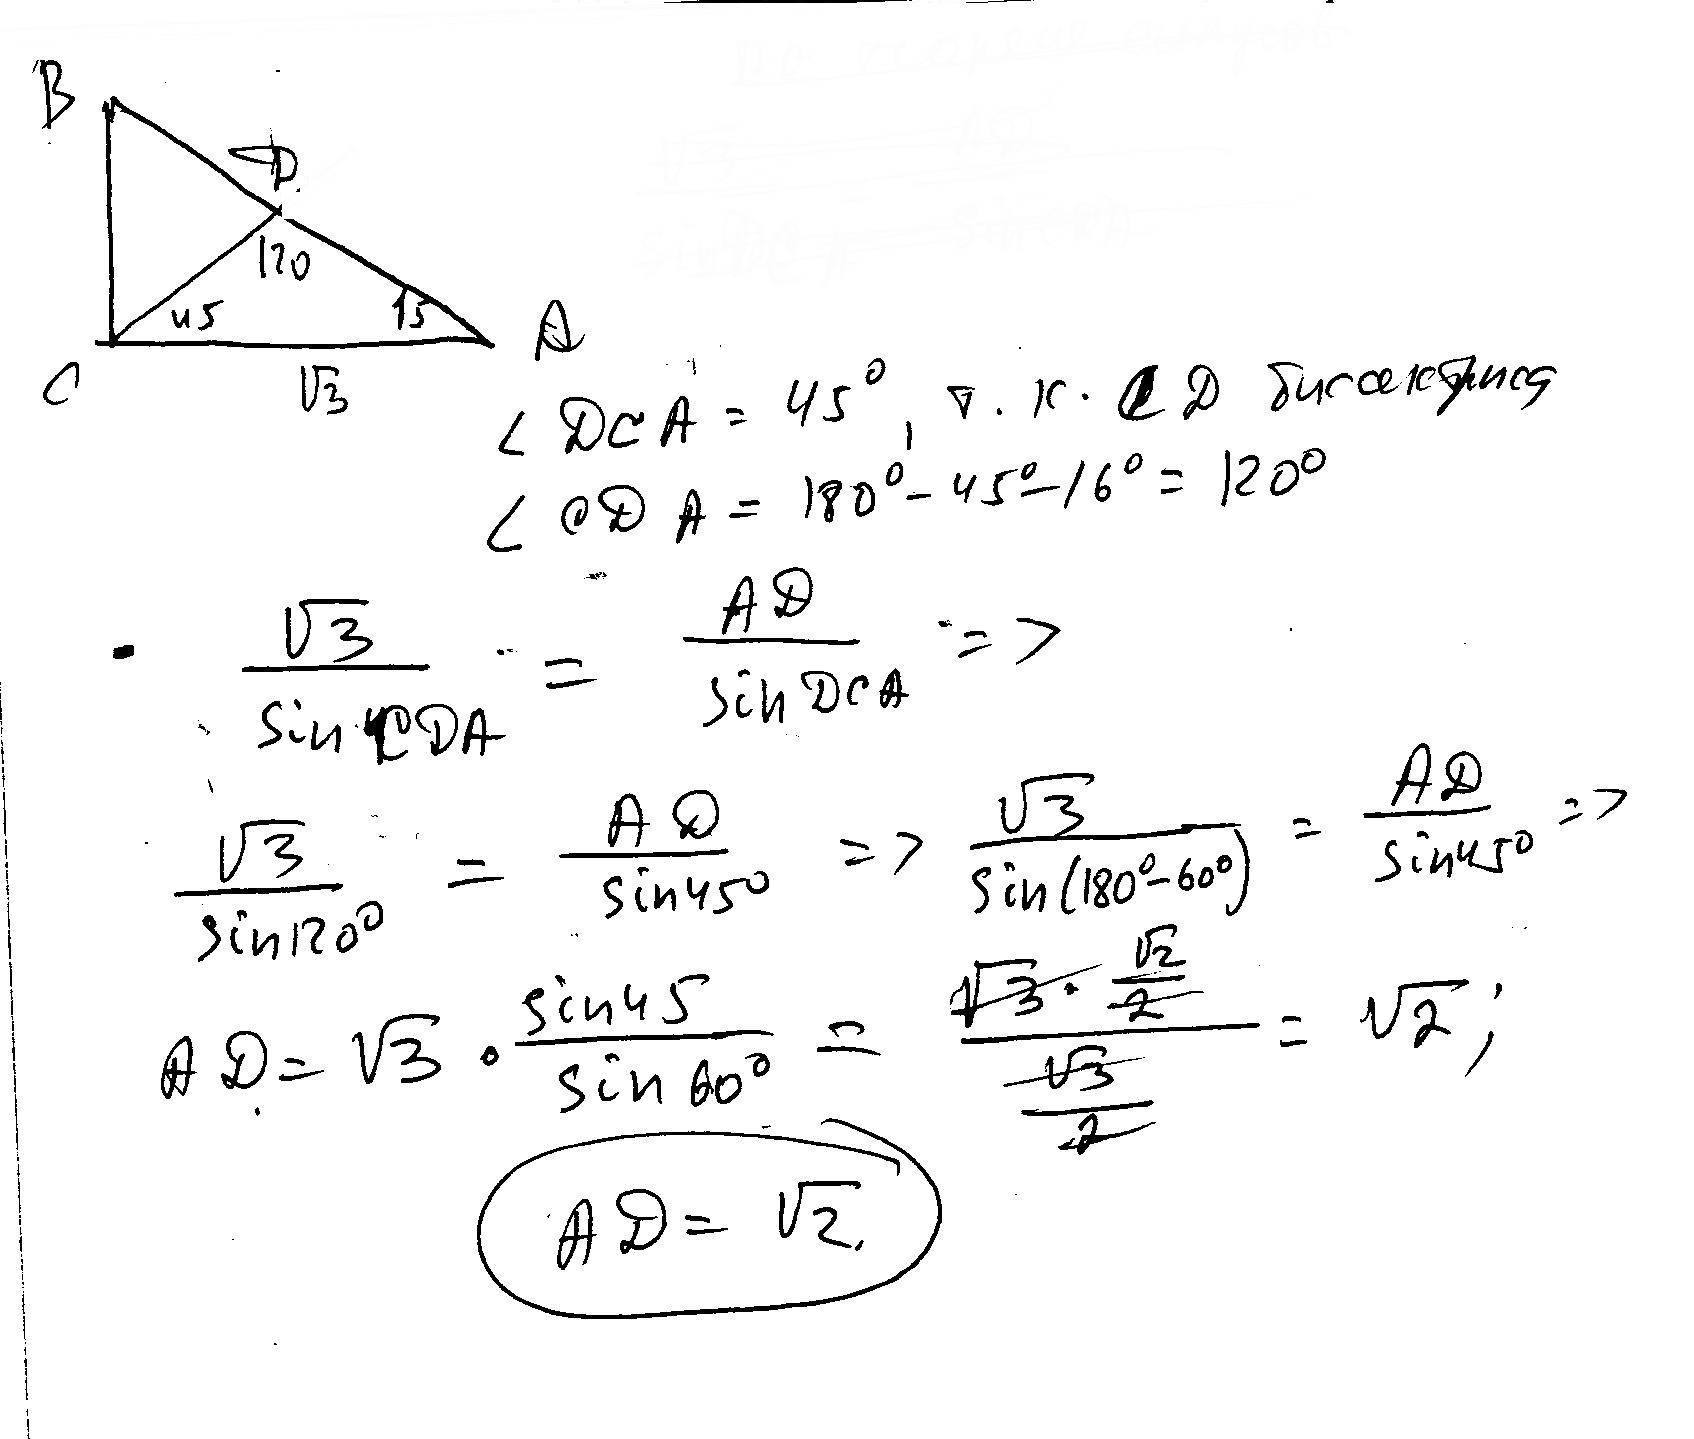 B
D
120
45
15
A
C
√3
∠ DCA = 45°, т.к. CD биссектриса
∠ CDA = 180° - 45° - 16° = 120°
√3 / sin CDA = AD / sin DCA =>
√3 / sin 120° = AD / sin 45° => √3 / sin(180° - 60°) = AD / sin 45° =>
AD = √3 · sin 45 / sin 60° = (√3 · √2/2) / (√3/2) = √2;
AD = √2.